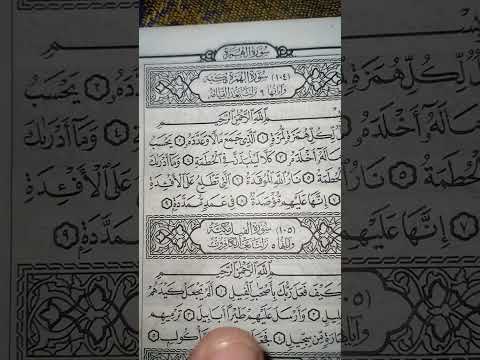 سُورَةُ الهُمَزَة
(١٠٤) سُورَةُ الهُمَزَةِ مَكِّيَّة
وَآيَاتُهَا ٩ نَزَلَتْ بَعْدَ القِيَامَة
بِسْمِ ٱللَّهِ ٱلرَّحْمَٰنِ ٱلرَّحِيمِ
لِّكُلِّ هُمَزَةٍ لُّمَزَةٍ ١ ٱلَّذِى جَمَعَ مَالًا وَعَدَّدَهُۥ ٢ يَحْسَبُ
مَالَهُۥٓ أَخْلَدَهُۥ ٣ كَلَّا لَيُنۢبَذَنَّ فِى ٱلْحُطَمَةِ ٤ وَمَآ أَدْرَىٰكَ
ٱلْحُطَمَةُ ٥ نَارُ ٱللَّهِ ٱلْمُوقَدَةُ ٦ ٱلَّتِى تَطَّلِعُ عَلَى ٱلْأَفْـِٔدَةِ
٧ إِنَّهَا عَلَيْهِم مُّؤْصَدَةٌ ٨ فِى عَمَدٍ مُّمَدَّدَةٍۭ ٩
(١٠٥) سُورَةُ الفِيلِ مَكِّيَّة
وَآيَاتُهَا ٥ نَزَلَتْ بَعْدَ الكَافِرُون
بِسْمِ ٱللَّهِ ٱلرَّحْمَٰنِ ٱلرَّحِيمِ
كَيْفَ فَعَلَ رَبُّكَ بِأَصْحَٰبِ ٱلْفِيلِ ١ أَلَمْ يَجْعَلْ كَيْدَهُمْ
وَأَرْسَلَ عَلَيْهِمْ طَيْرًا أَبَابِيلَ ٣ تَرْمِيهِم
مِّن سِجِّيلٍ ٤